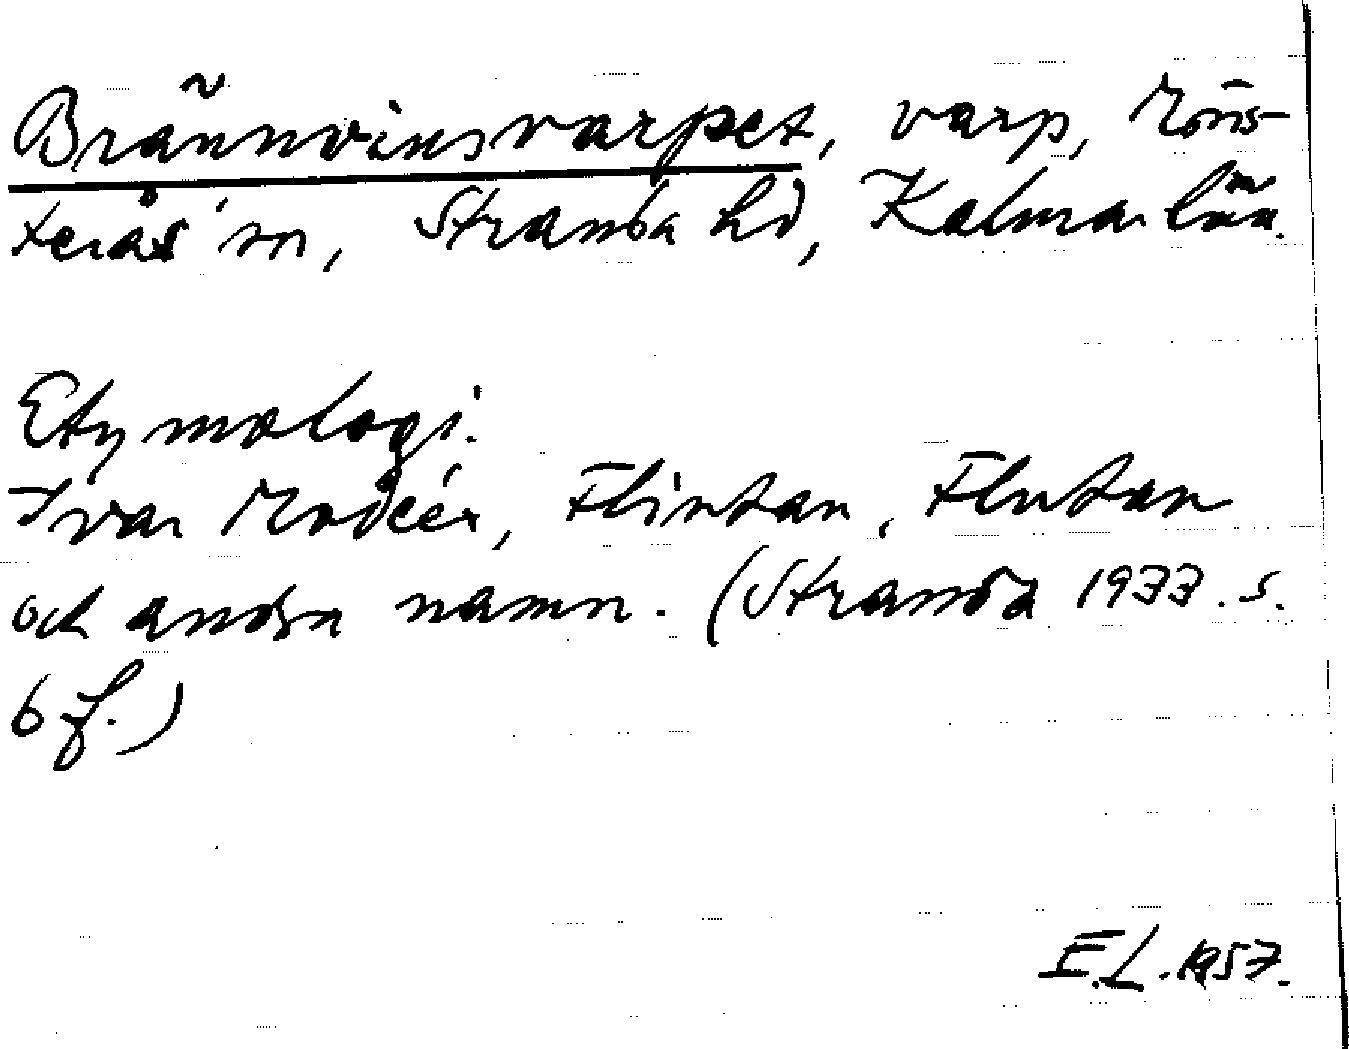 Brännvinsvarpet, varp, Möns-
terås sn, Stranda hd, Kalmar län.
Etymologi.
Ivar Modéer, Flintan, Flutan
och andra namn. (Stranda 1933. s.
6 f.)
E.L. 1957.